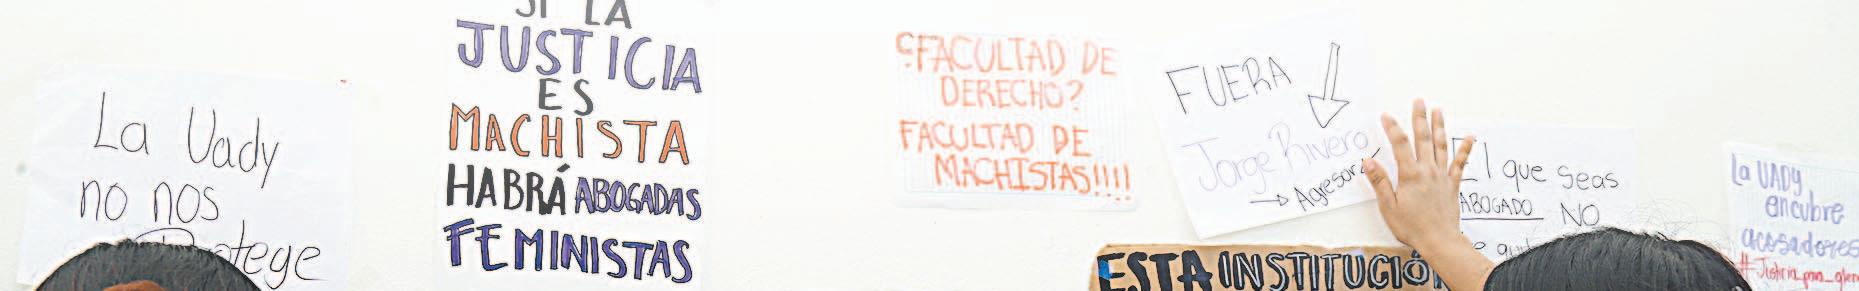 La Uady
no nos
SI LA
JUSTICIA
ES
MACHISTA
HABRÁ ABOGADAS
FEMINISTAS
¿FACULTAD DE
DERECHO?
FACULTAD DE
MACHISTAS!!!!
FUERA
Jorge Rivero
→ Agresor
ESTA INSTITUCIÓ
El que seas
ABOGADO NO
La UADY
encubre
acosadores